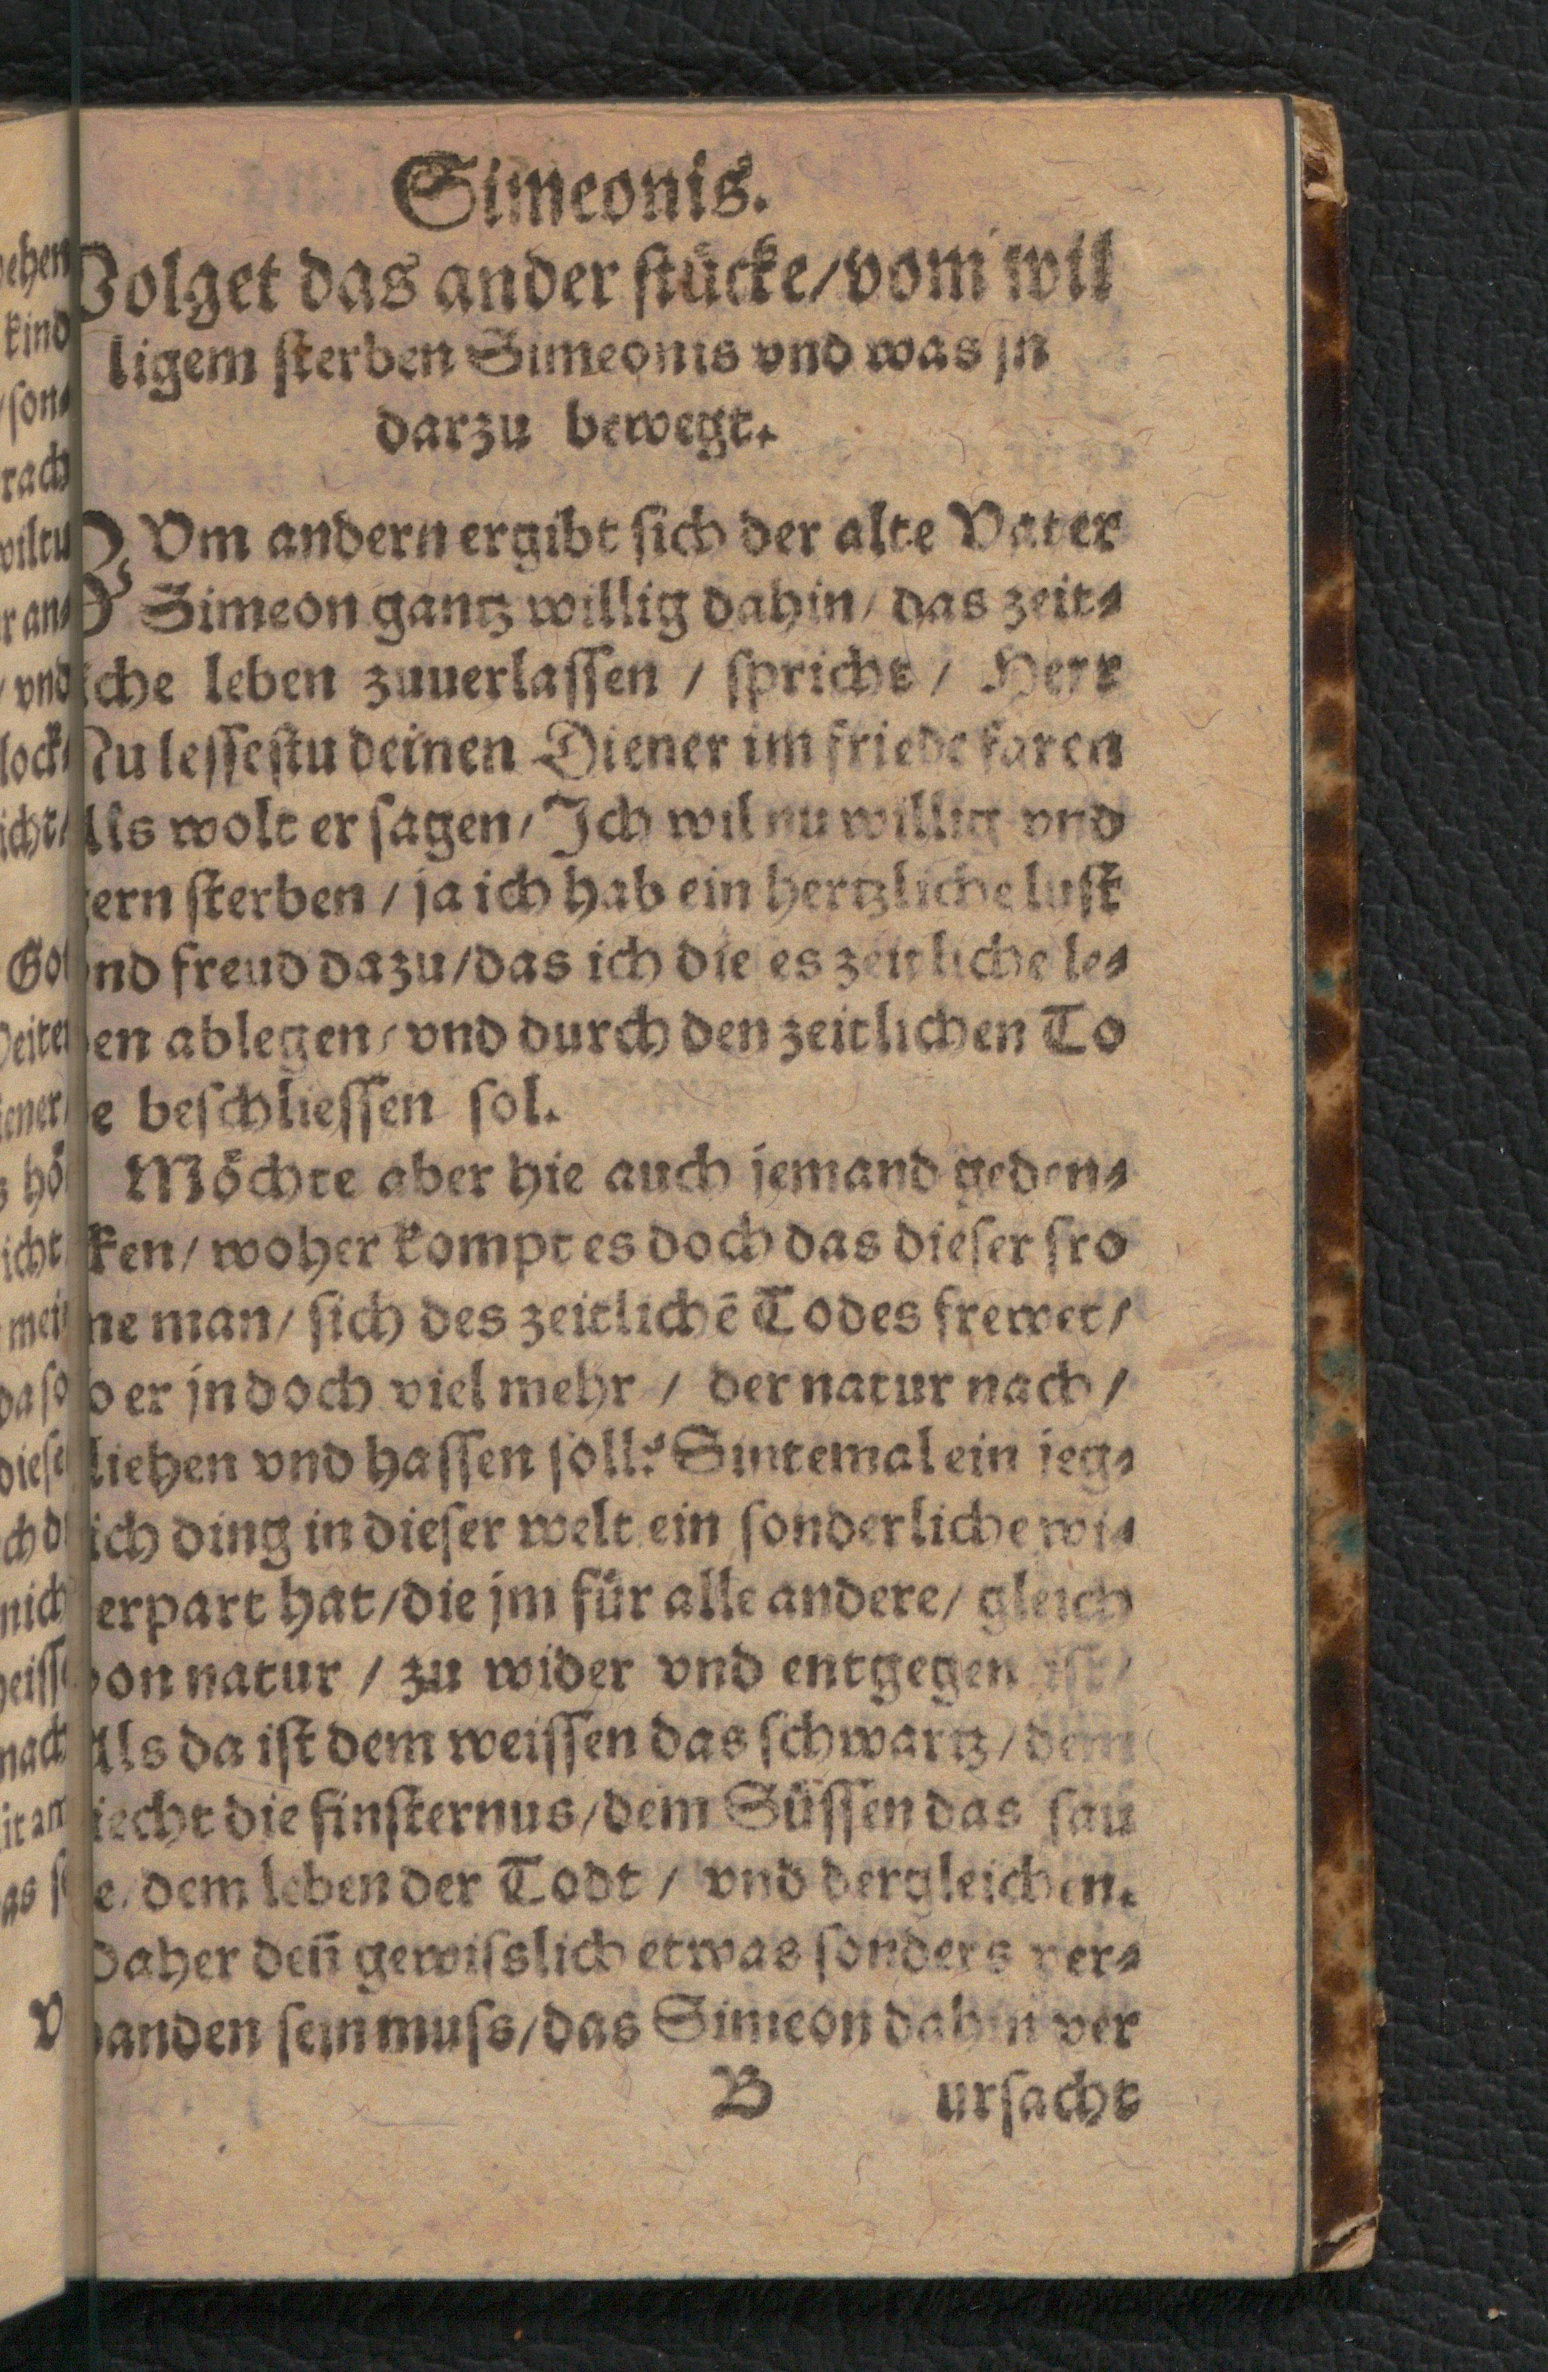 Simeonis.
Volget das ander stücke/vom wil
ligem sterben Simeonis vnd was jn
darzu bewegt.
ZVm andern ergibt sich der alte Vater
Simeon gantz willig dahin/ das zeit⸗
iche leben zuuerlassen / spricht / Herr
Nu lessestu deinen Diener im friede faren
Als wolt er sagen/ Ich wil nu willig vnd
gern sterben / ja ich hab ein hertzliche lust
vnd freud dazu/das ich die es zeitliche le⸗
ben ablegen/ vnd durch den zeitlichen To
de beschliessen sol.
Möchte aber hie auch jemand geden⸗
cken/ woher kompt es doch das dieser fro
me man/ sich des zeitlichē Todes frewet/
so er jn doch viel mehr / der natur nach /
fliehen vnd hassen soll? Sintemal ein jeg⸗
lich ding in dieser welt ein sonderliche wi⸗
derpart hat/die jm für alle andere/ gleich
von natur / zu wider vnd entgegen ist/
Als da ist dem weissen das schwartz/dem
liecht die finsternus/dem Süssen das sau
re/dem leben der Todt / vnd dergleichen.
Daher deñ gewisslich etwas sonders ver⸗
handen sein muss/das Simeon dahin ver
B ursacht